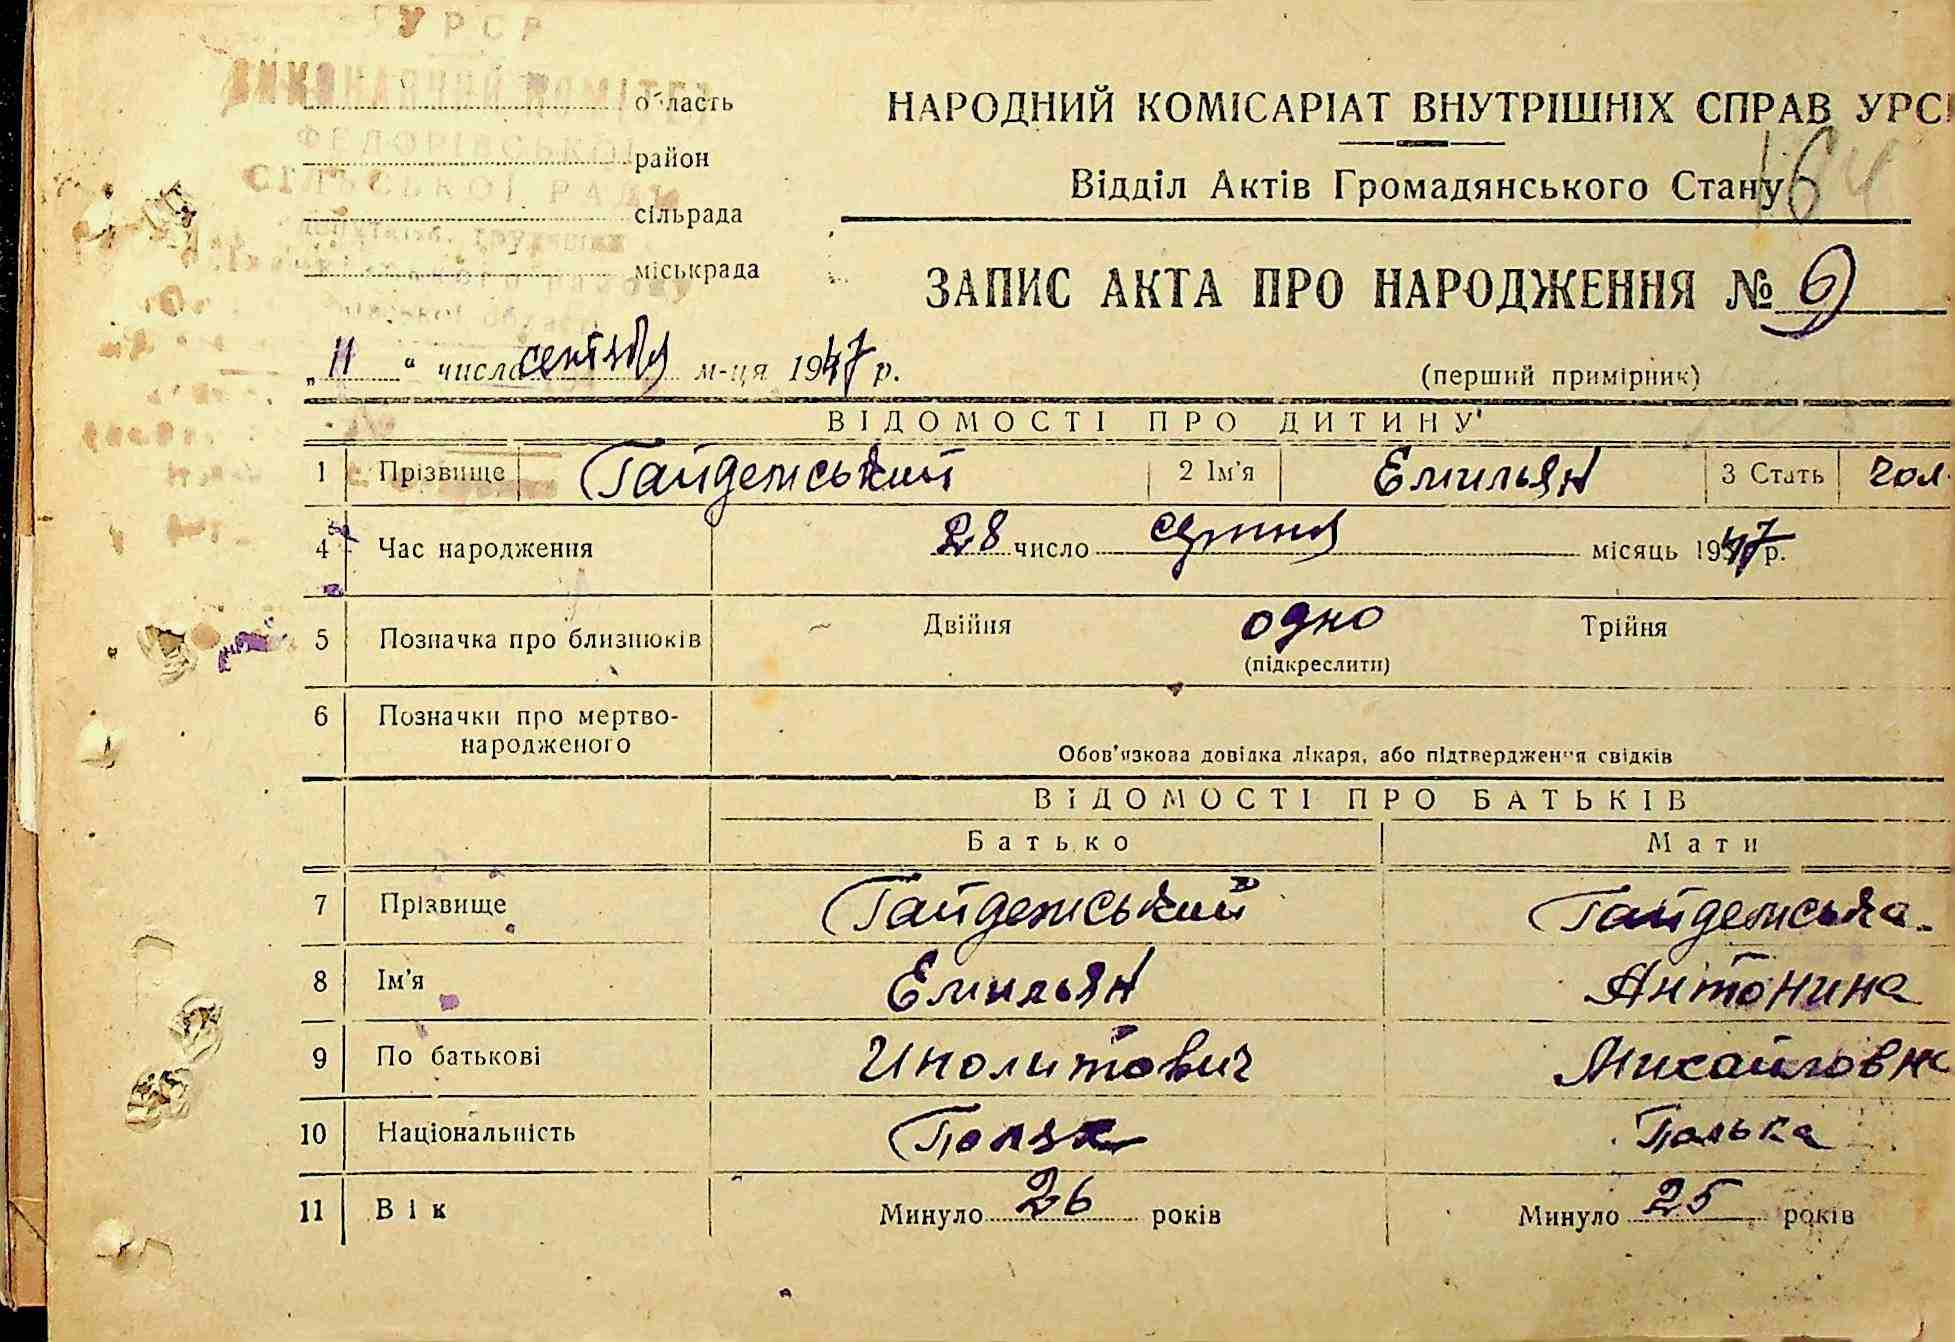 УРСР
ФЕДОРІВСЬКОЇ
СІЛЬСЬКОЇ РАДИ
область
район
сільрада
міськрада
НАРОДНИЙ КОМІСАРІАТ ВНУТРІШНІХ СПРАВ УРС
Відділ Актів Громадянського Стану
164
ЗАПИС АКТА ПРО НАРОДЖЕННЯ № 9
„ 11 “ числа сентября м-ця 1947 р.
(перший примірник)
ВІДОМОСТІ ПРО ДИТИНУ
1 Прізвище Гайдемський 2 Ім'я Емильян 3 Стать чол.
4 Час народження 28 число серпня місяць 1947 р.
5 Позначка про близнюків Двійня одно Трійня
(підкреслити)
6 Позначки про мертво-
народженого
Обов'язкова довідка лікаря, або підтвердження свідків
ВІДОМОСТІ ПРО БАТЬКІВ
Батько Мати
7 Прізвище Гайдемський Гайдемська
8 Ім'я Емильян Антонина
9 По батькові Иполитович Михайловн
10 Національність Поляк Полька
11 Вік Минуло 26 років Минуло 25 років